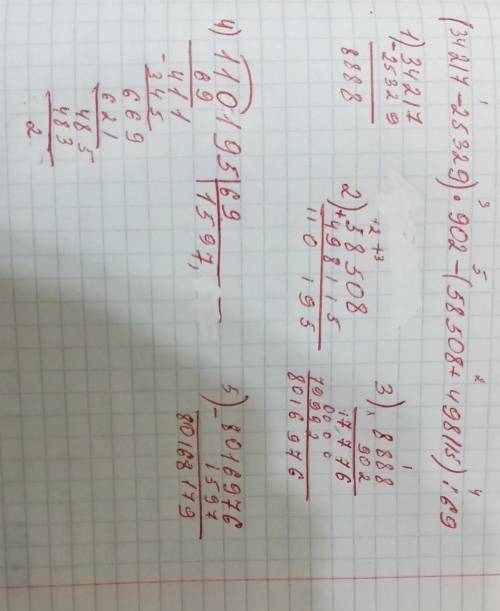 1 3 5 2 4
(34217-25329)·902-(58508+498115):69
1) 34217
-25329
8888
2) 58508
+498115
110195
3) 8888
× 902
17776
0000
79992
8016976
4) 110195 | 69
69 | 1597,
411
-345
669
621
485
483
2
5) 8016976
- 1597
80168179